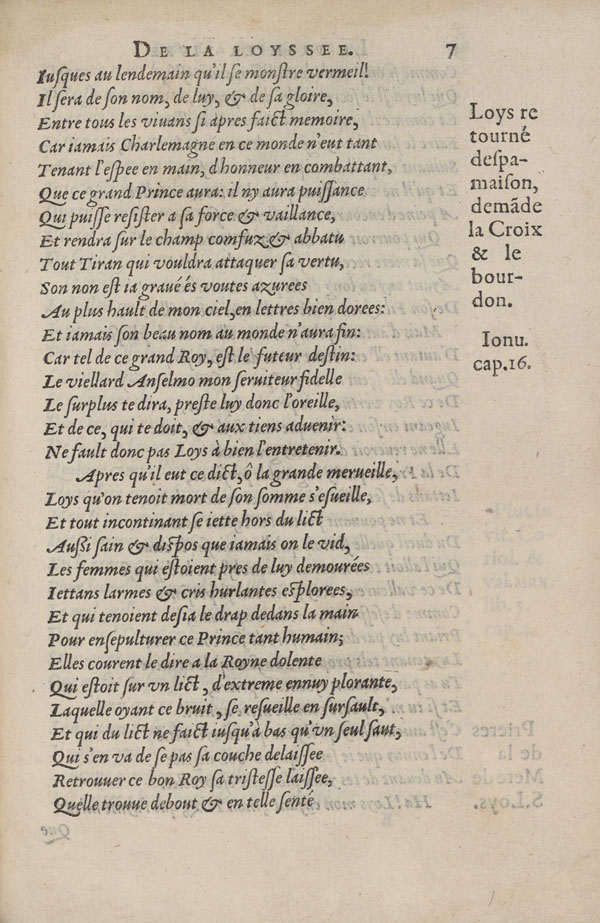 DE LA LOYSSEE. 7
Iusques au lendemain qu'il se monstre vermeil!
Il sera de son nom, de luy, & de sa gloire,
Entre tous les viuans si apres faict memoire,
Car iamais Charlemagne en ce monde n'eut tant
Tenant l'espee en main, d'honneur en combattant,
Que ce grand Prince aura: il ny aura puissance
Qui puisse resister a sa force & vaillance,
Et rendra sur le champ comfuz & abbatu
Tout Tiran qui vouldra attaquer sa vertu,
Son non est ia graué és voutes azurees
Au plus hault de mon ciel, en lettres bien dorees:
Et iamais son beau nom au monde n'aura fin:
Car tel de ce grand Roy, est le futeur destin:
Le viellard Anselmo mon seruiteur fidelle
Le surplus te dira, preste luy donc l'oreille,
Et de ce, qui te doit, & aux tiens aduenir:
Ne fault donc pas Loys à bien l'entretenir.
Apres qu'il eut ce dict, ô la grande merueille,
Loys qu'on tenoit mort de son somme s'esueille,
Et tout incontinant se iette hors du lict
Aussi sain & dispos que iamais on le vid,
Les femmes qui estoient pres de luy demourées
Iettans larmes & cris hurlantes esplorees,
Et qui tenoient desia le drap dedans la main
Pour ensepulturer ce Prince tant humain;
Elles courent le dire a la Royne dolente
Qui estoit sur vn lict, d'extreme ennuy plorante,
Laquelle oyant ce bruit, se resueille en sursault,
Et qui du lict ne faict iusqu'à bas qu'vn seul saut,
Qui s'en va de se pas sa couche delaissee
Retrouuer ce bon Roy sa tristesse laissee,
Quelle trouue debout & en telle senté
Loys re
tourné
despa-
maison,
demãde
la Croix
& le
bour-
don.
Ionu.
cap.16.